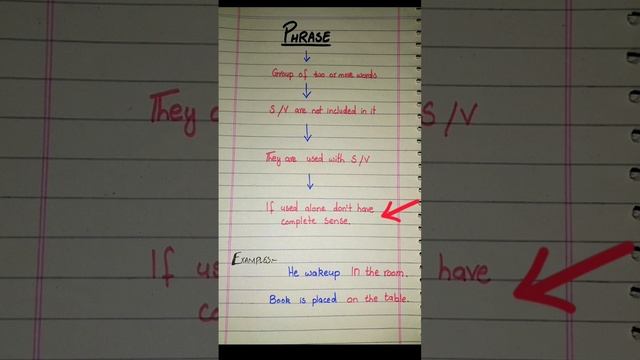 PHRASE
Group of two or more words
S/V are not included in it
They are used with S/V
If used alone don't have
complete sense.
EXAMPLES:-
He wakeup in the room.
Book is placed on the table.